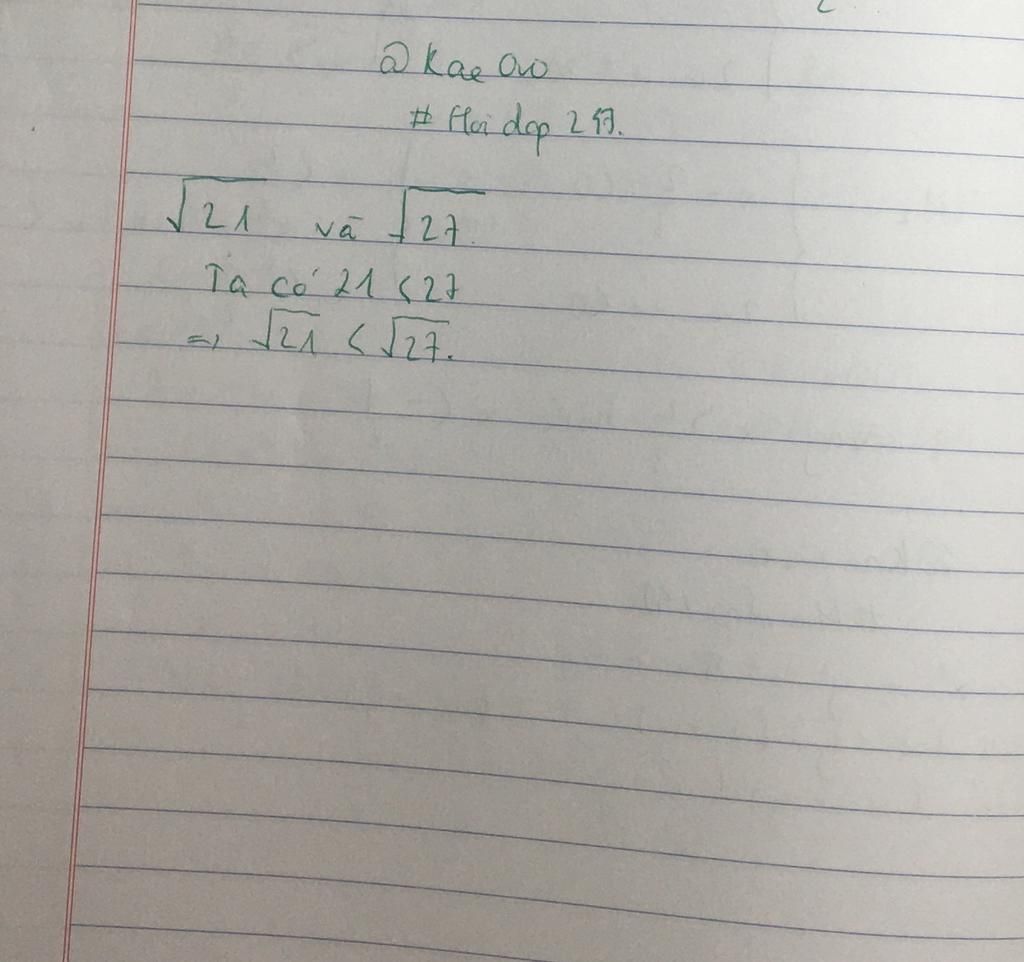 @ Kae OvO
# Hoi dap 247.
√21 và √27.
Ta có 21 < 27
=> √21 < √27.